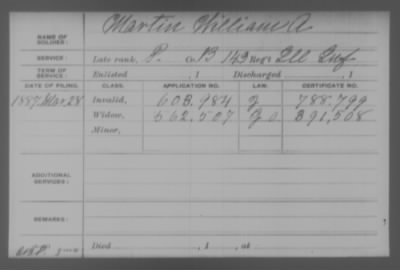 Martin William A
NAME OF SOLDIER:
SERVICE: Late rank, P. Co. B 143 Reg't Ill Inf
TERM OF SERVICE: Enlisted , 1 Discharged , 1
DATE OF FILING. CLASS. APPLICATION NO. LAW. CERTIFICATE NO.
1887 Mar 28 Invalid, 603,984 788,799
Widow, 662,507 391,508
Minor,
ADDITIONAL SERVICES:
REMARKS:
Died , 1 , at